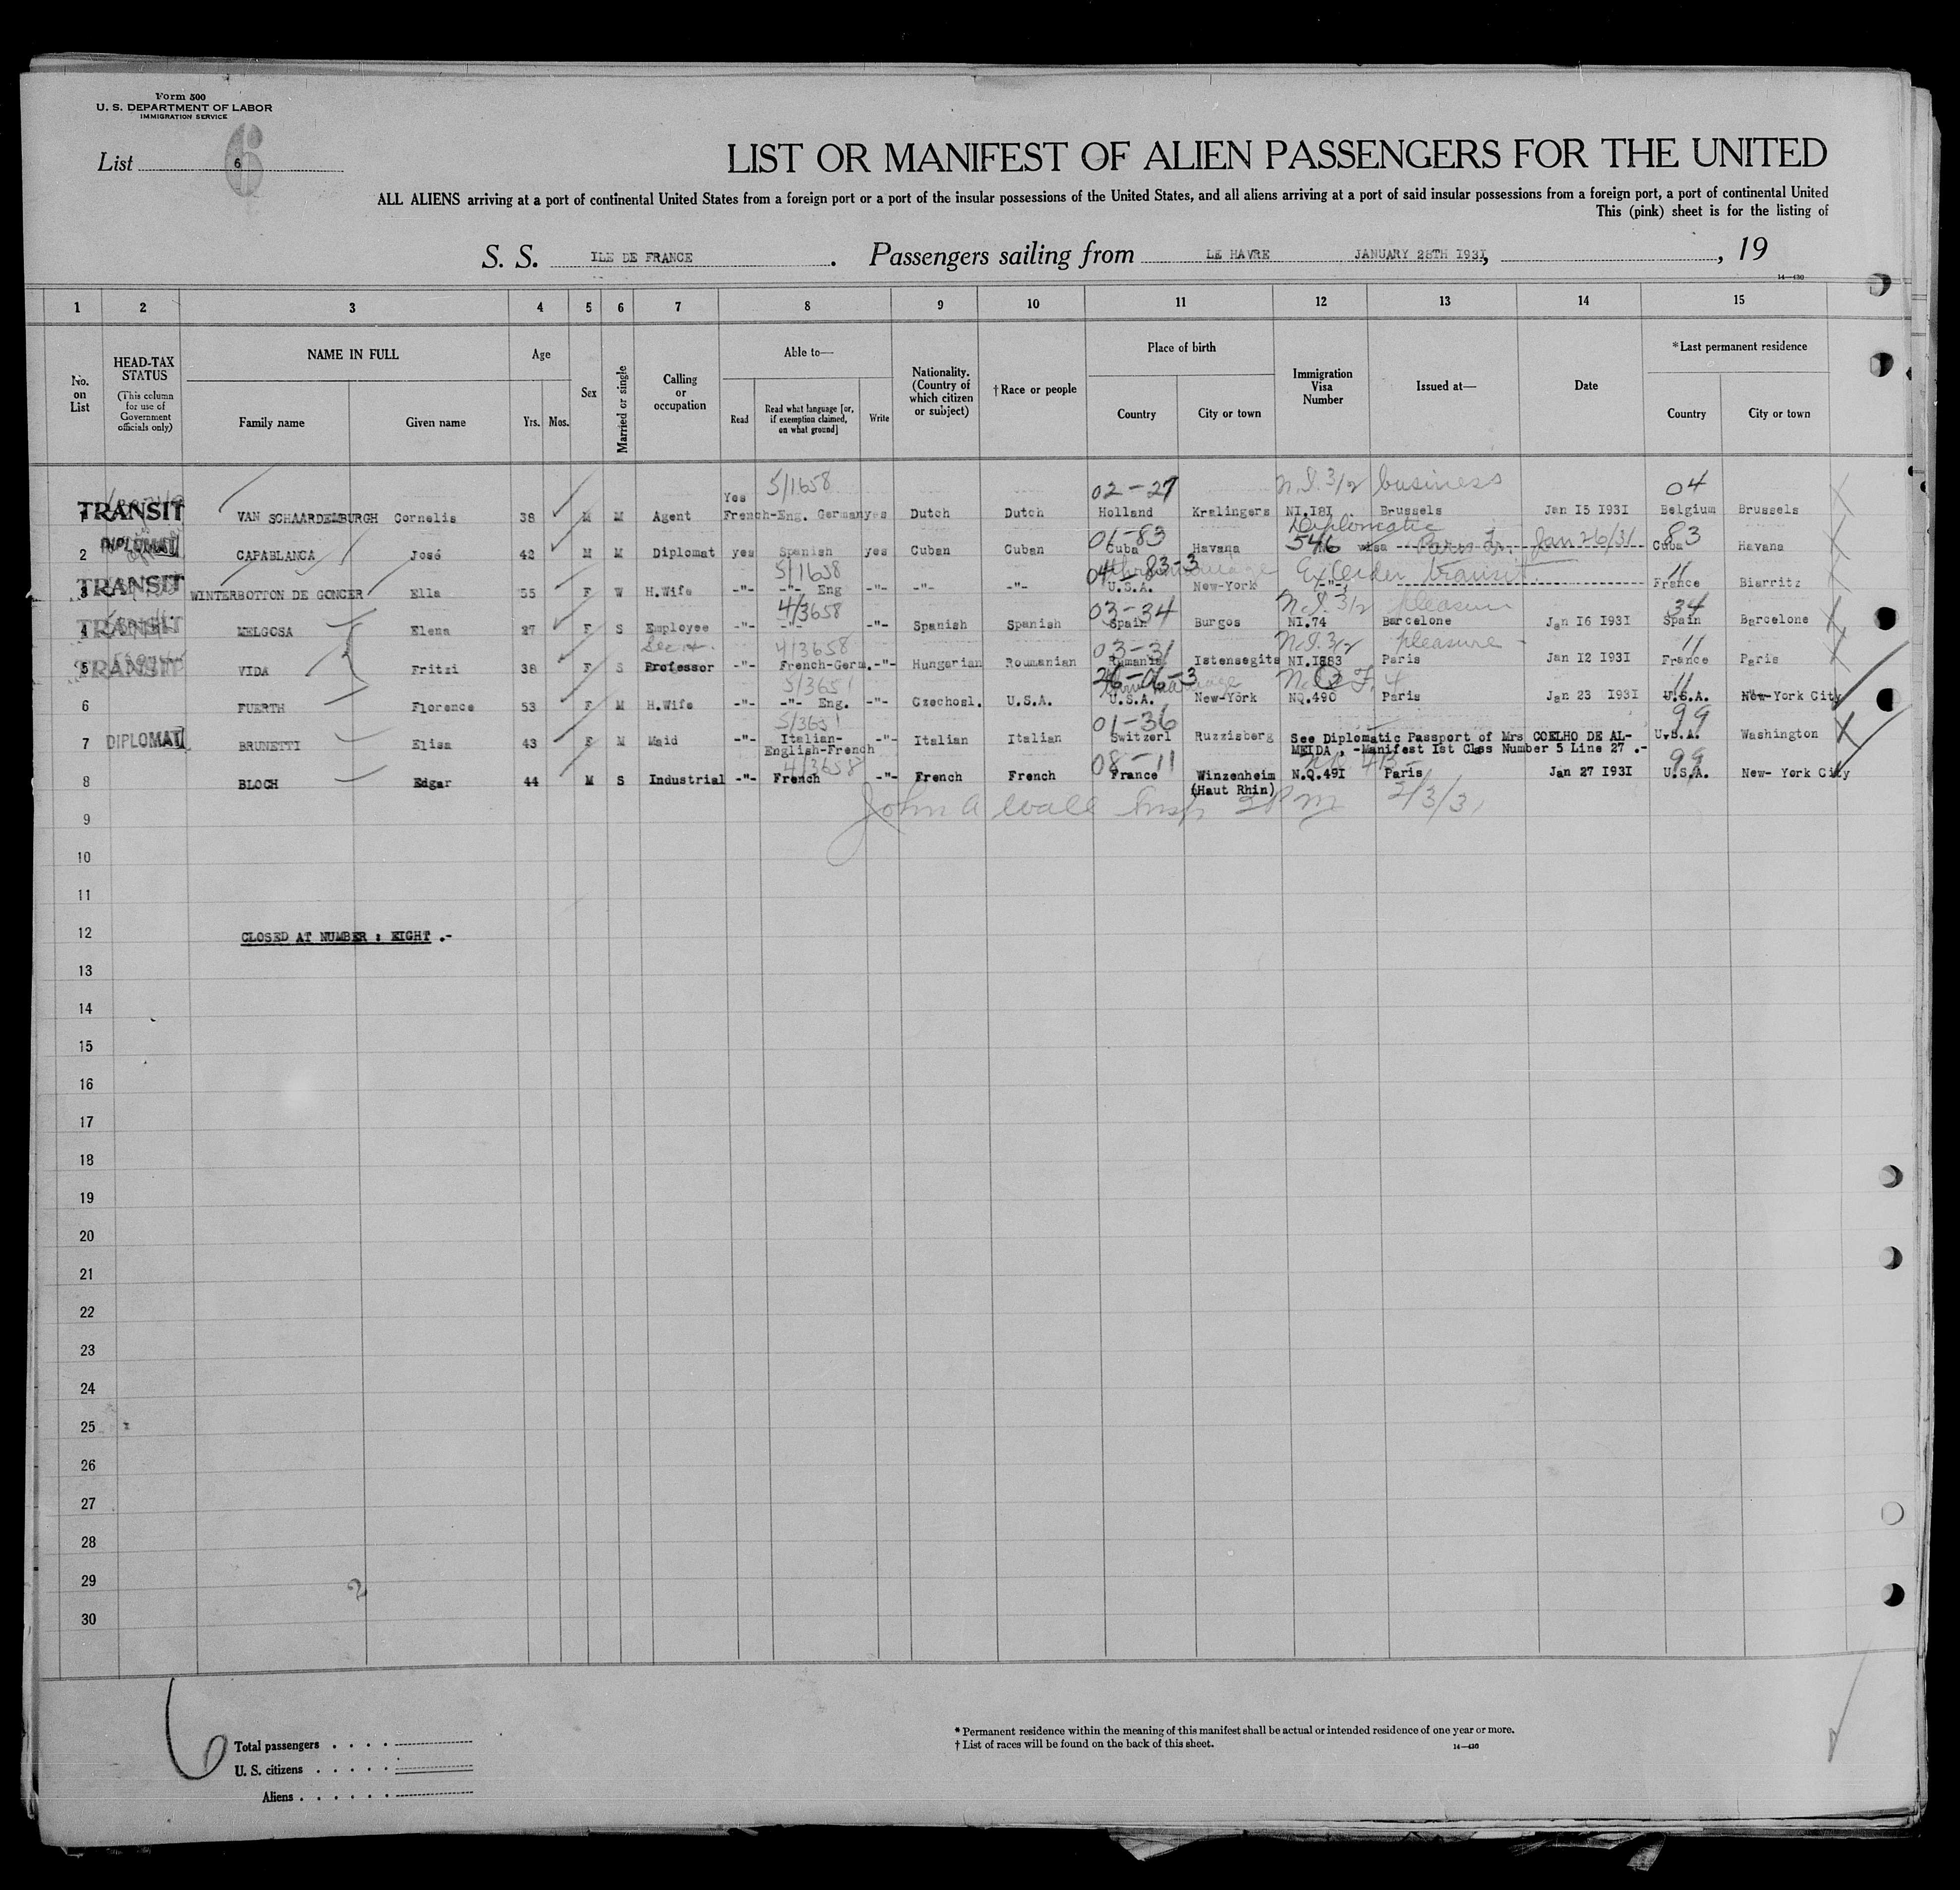 Form 500
U. S. DEPARTMENT OF LABOR
IMMIGRATION SERVICE
List 6 6
LIST OR MANIFEST OF ALIEN PASSENGERS FOR THE UNITED
ALL ALIENS arriving at a port of continental United States from a foreign port or a port of the insular possessions of the United States, and all aliens arriving at a port of said insular possessions from a foreign port, a port of continental United
This (pink) sheet is for the listing of
S. S. ILE DE FRANCE . Passengers sailing from LE HAVRE JANUARY 28TH I93I, , 19
14—430
1 2 3 4 5 6 7 8 9 10 11 12 13 14 15
No. on List
HEAD-TAX STATUS (This column for use of Government officials only)
NAME IN FULL Family name Given name
Age Yrs. Mos.
Sex
Married or single
Calling or occupation
Able to— Read Read what language [or, if exemption claimed, on what ground] Write
Nationality. (Country of which citizen or subject)
†Race or people
Place of birth Country City or town
Immigration Visa Number
Issued at—
Date
*Last permanent residence Country City or town
5/1658 02-27 N.I. 3/2 business 04
1 TRANSIT VAN SCHAARDEMBURGH Cornelis 38 M M Agent Yes French-Eng. German yes Dutch Dutch Holland Kralingers NI.I8I Brussels Jan I5 I93I Belgium Brussels
01-83 Diplomatic 83
2 DIPLOMAT CAPABLANCA José 42 M M Diplomat yes Spanish yes Cuban Cuban Cuba Havana 546 visa Paris Fr. Jan 26/31 Cuba Havana
5/1658 04-83-3 thru marriage Ex Order transit 11
3 TRANSIT WINTERBOTTON DE GONCER Ella 55 F W H.Wife -"- -"- Eng -"- -"- -"- U.S.A. New-York -"- France Biarritz
4/3658 03-34 N.I. 3/2 pleasure 34
4 TRANSIT MELGOSA Elena 27 F S Employee -"- -"- -"- Spanish Spanish Spain Burgos NI.74 Barcelone Jan I6 I93I Spain Barcelone
4/3658 03-31 N.I. 3/2 pleasure 11
5 TRANSIT VIDA Fritzi 38 F S Professor -"- French-Germ. -"- Hungarian Roumanian Rumania Istensegits NI.I883 Paris Jan I2 I93I France Paris
5/3651 26-06-3 11
6 FUERTH Florence 53 F M H.Wife -"- -"- Eng. -"- Czechosl. U.S.A. U.S.A. New-York NQ.490 Paris Jan 23 I93I U.S.A. New-York City
5/3651 01-36 99
7 DIPLOMAT BRUNETTI Elisa 43 F M Maid -"- Italian- English-French -"- Italian Italian Switzerl Ruzzisberg See Diplomatic Passport of Mrs COELHO DE AL- U.S.A. Washington
MEIDA , -Manifest Ist Class Number 5 Line 27 .-
4/3658 08-11 99
8 BLOCH Edgar 44 M S Industrial -"- French -"- French French France Winzenheim N.Q.49I Paris Jan 27 I93I U.S.A. New- York City
(Haut Rhin)
9 John A Wall Insp 2 P m 2/3/31
10
11
12 CLOSED AT NUMBER : EIGHT .-
13
14
15
16
17
18
19
20
21
22
23
24
25
26
27
28
29 2
30
6
Total passengers . . . .
U. S. citizens . . . . .
Aliens . . . . . .
* Permanent residence within the meaning of this manifest shall be actual or intended residence of one year or more.
† List of races will be found on the back of this sheet.
14—430